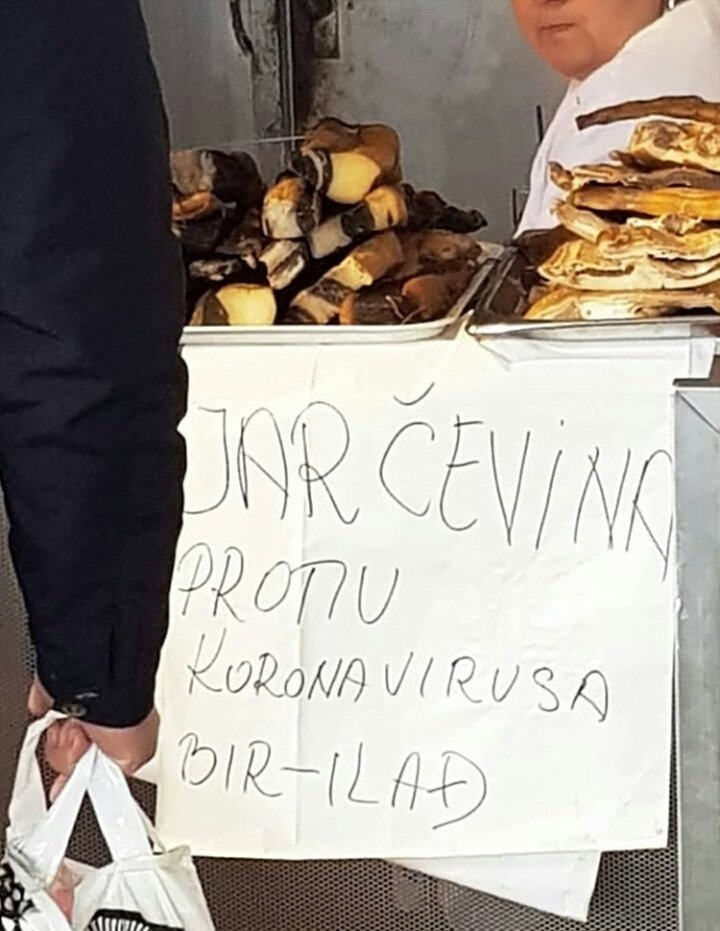 JARČEVINA
PROTIV
KORONAVIRUSA
BIR-ILAĐ